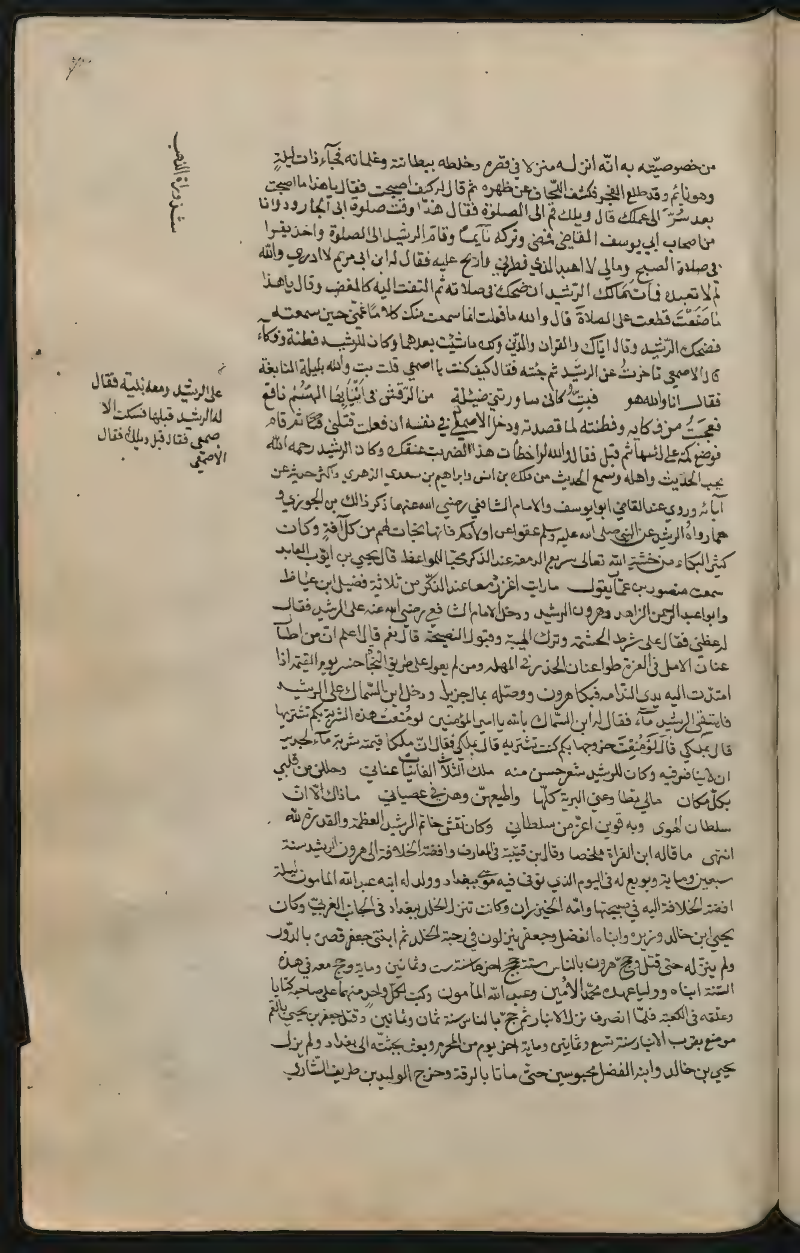 من خصوصيته به انه انزله منزلا في قصره وخلطه ببطانته وغلمانه فجآء ذات ليلةٍ
وهو نائم وقد طلع الفجر فكشف اللحاف عن ظهره ثم قال له كيف اصبحت فقال يا هذا ما اصبحت
بعد مُرّ الى عملك قال ويلك قم الى الصلوة فقال هذا وقت صلوة ابى الجارود وانا
من اصحاب ابى يوسف القاضى فمضى وتركه نآيمًا وقام الرشيد الى الصلوة واخذ يقرا
فى صلاة الصبح ومالى لا اعبد الذى فطرنى وارتج عليه فقال له ابن ابى مريم لا ادرى والله
لم لا تعبده فما تمالك الرشيد ان ضحك فى صلاته ثم التفت اليه كالمغضب وقال يا هذا
ما صنعت قطعت على الصلاة قال والله ما فعلت انما سمعت منك كلاما غمنى حين سمعته
فضحك الرشيد وقال اياك والقران والدين ولك ما شئت بعدهما وكان للرشيد فطنة وذكاء
قال الاصمعى تاخرت عن الرشيد ثم جئته فقال كيف كنت يا اصمعى قلت بت والله بليلة النابغة
فقال انا والله هو فبتّ كانى ساورتنى ضئيلة من الرقش فى انيابها السّمّ ناقع
فعجبت من ذكايه وفطنته لما قصدته ودخل الاصمعى فى نفسه ان فعلت قتلنى فقام
فوضع كمه على راسها ثم قبل فقال والله لو اخطات هذا لضربت عنقك وكان الرشيد رحمه الله
يحب الحديث واهله وسمع الحديث من ملك بن انس وابراهيم بن سعدى الزهرى واكثر حديثه عن
آبائه وروى عنه القاضى ابو يوسف والامام الشافعى رضى الله عنهما ذكر ذالك بن الجوزى و
مما رواه الرشيد عن النبى صلى الله عليه وسلم عقوا عن اولادكم فانها نجات لهم من كل آفة وكان
كثير البكاء من خشية الله تعالى سريع الدمعة عند الذكر محبا للمواعظ قال يحيى بن ايوب العابد
سمعت منصور بن عمار يقول ما رايت اغزر دمعا عند الذكر من ثلاثة فضيل ابن عياظ
وابو عبد الرحمن الزاهد وهرون الرشيد ودخل الامام الشافعى رضى الله عنه على الرشيد فقال
له عظنى فقال على شرط الحشمة وترك الهيبة وقبول النصيحة قال نعم قال اعلم ان من اطال
عنان الامل فى العزة طوا عنان الحذر فى المهلة ومن لم يعول على طريق النجآ خسر يوم القيمة اذا
امتدت اليه يدى الندامة فبكا هرون ووصله بمال جزيل ودخل ابن السّماك على الرشيد
فاستقى الرشيد مآء فقال له ابن السماك بالله يا امير المؤمنين لو مُنعت هذه الشربة بكم تشتريها
قال بملكى قال لو مُنِعْتَ خروجها بكم كنت تشتريه قال بملكى فقال ان ملكا قيمته شربة مآء لجدير
ان لا ينافس فيه وكان للرشيد شعر حسن منه ملك الثلاث الغانيات عنانى وحللن من قلبى
بكل مكان مالى تطاوعنى البرية كلها واطيعهن وهن فى عصيانى ما ذاك الا ان
سلطان الهوى وبه قوين اعز من سلطانى وكان نقش خاتم الرشيد العظمة والقدرة لله
انتهى ما قاله ابن الفراة ملخصا وقال بن قتيبة فى المعارف وافضة الخلافة الى هرون الرشيد سنة
سبعين وماية وبويع له فى اليوم الذى توفى فيه موسى ببغداد وولد له ابنه عبد الله المامون ليلة
افضة الخلافة اليه فى صبيحتها وامه الخيزران وكانت تنزل الخلد ببغداد فى الجانب الغربى وكان
يحيى ابن خالد وزيره وابناه الفضل وجعفر ينزلون فى رحبة الخلد ثم ابتنى جعفر قصره بالدور
ولم ينزله حتى قتل وحجّ هرون بالناس ستة حجج اخرها سنة ست وثمانين وماية وحج معه فى هذه
السّنة ابناه ووليا عهده محمّد الامين وعبد الله المامون وكتب لكل واحد منهما على صاحبه كتابا
وعلقه فى الكعبة فلمّا انصرف نزل الانبار ثم حجّ بالناس سنة ثمان وثمانين وقتل جعفر بن يحيى بالعمر
موضع بقرب الانبار سنة تسع وثمانين وماية اخر يوم من المحرم وبعث بجثته الى بغداد ولم يزل
يحيى بن خالد وابنه الفضل محبوسين حتى ماتا بالرقة وخرج الوليد بن طريف الشارى
على الرشيد ومعه بنية فقال
له الرشيد قبلها فسكت الا
صمعى فقال قبل ويلك فقال
الاصمعى